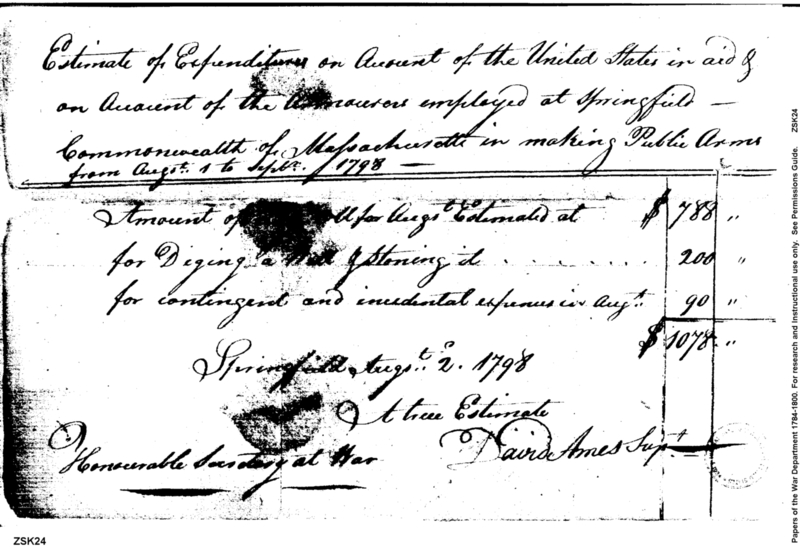 Estimate of Expenditures on Account of the United States in aid &
on Account of the Armourers employed at Springfield —
Commonwealth of Massachusetts in making Public Arms
from Augst. 1 to Septbr. 1 1798 —
Amount of Roll for Augst. Estimated at $ 788 "
for Diging a Well & Stoning it . . . . . . . 200 "
for contingent and incidental expenses in Augt. 90 "
$ 1078 "
Springfield Augst. 2. 1798
A true Estimate
David Ames Supt
Honourable Secretary at War
ZSK24
Papers of the War Department 1784-1800. For research and instructional use only. See Permissions Guide. ZSK24